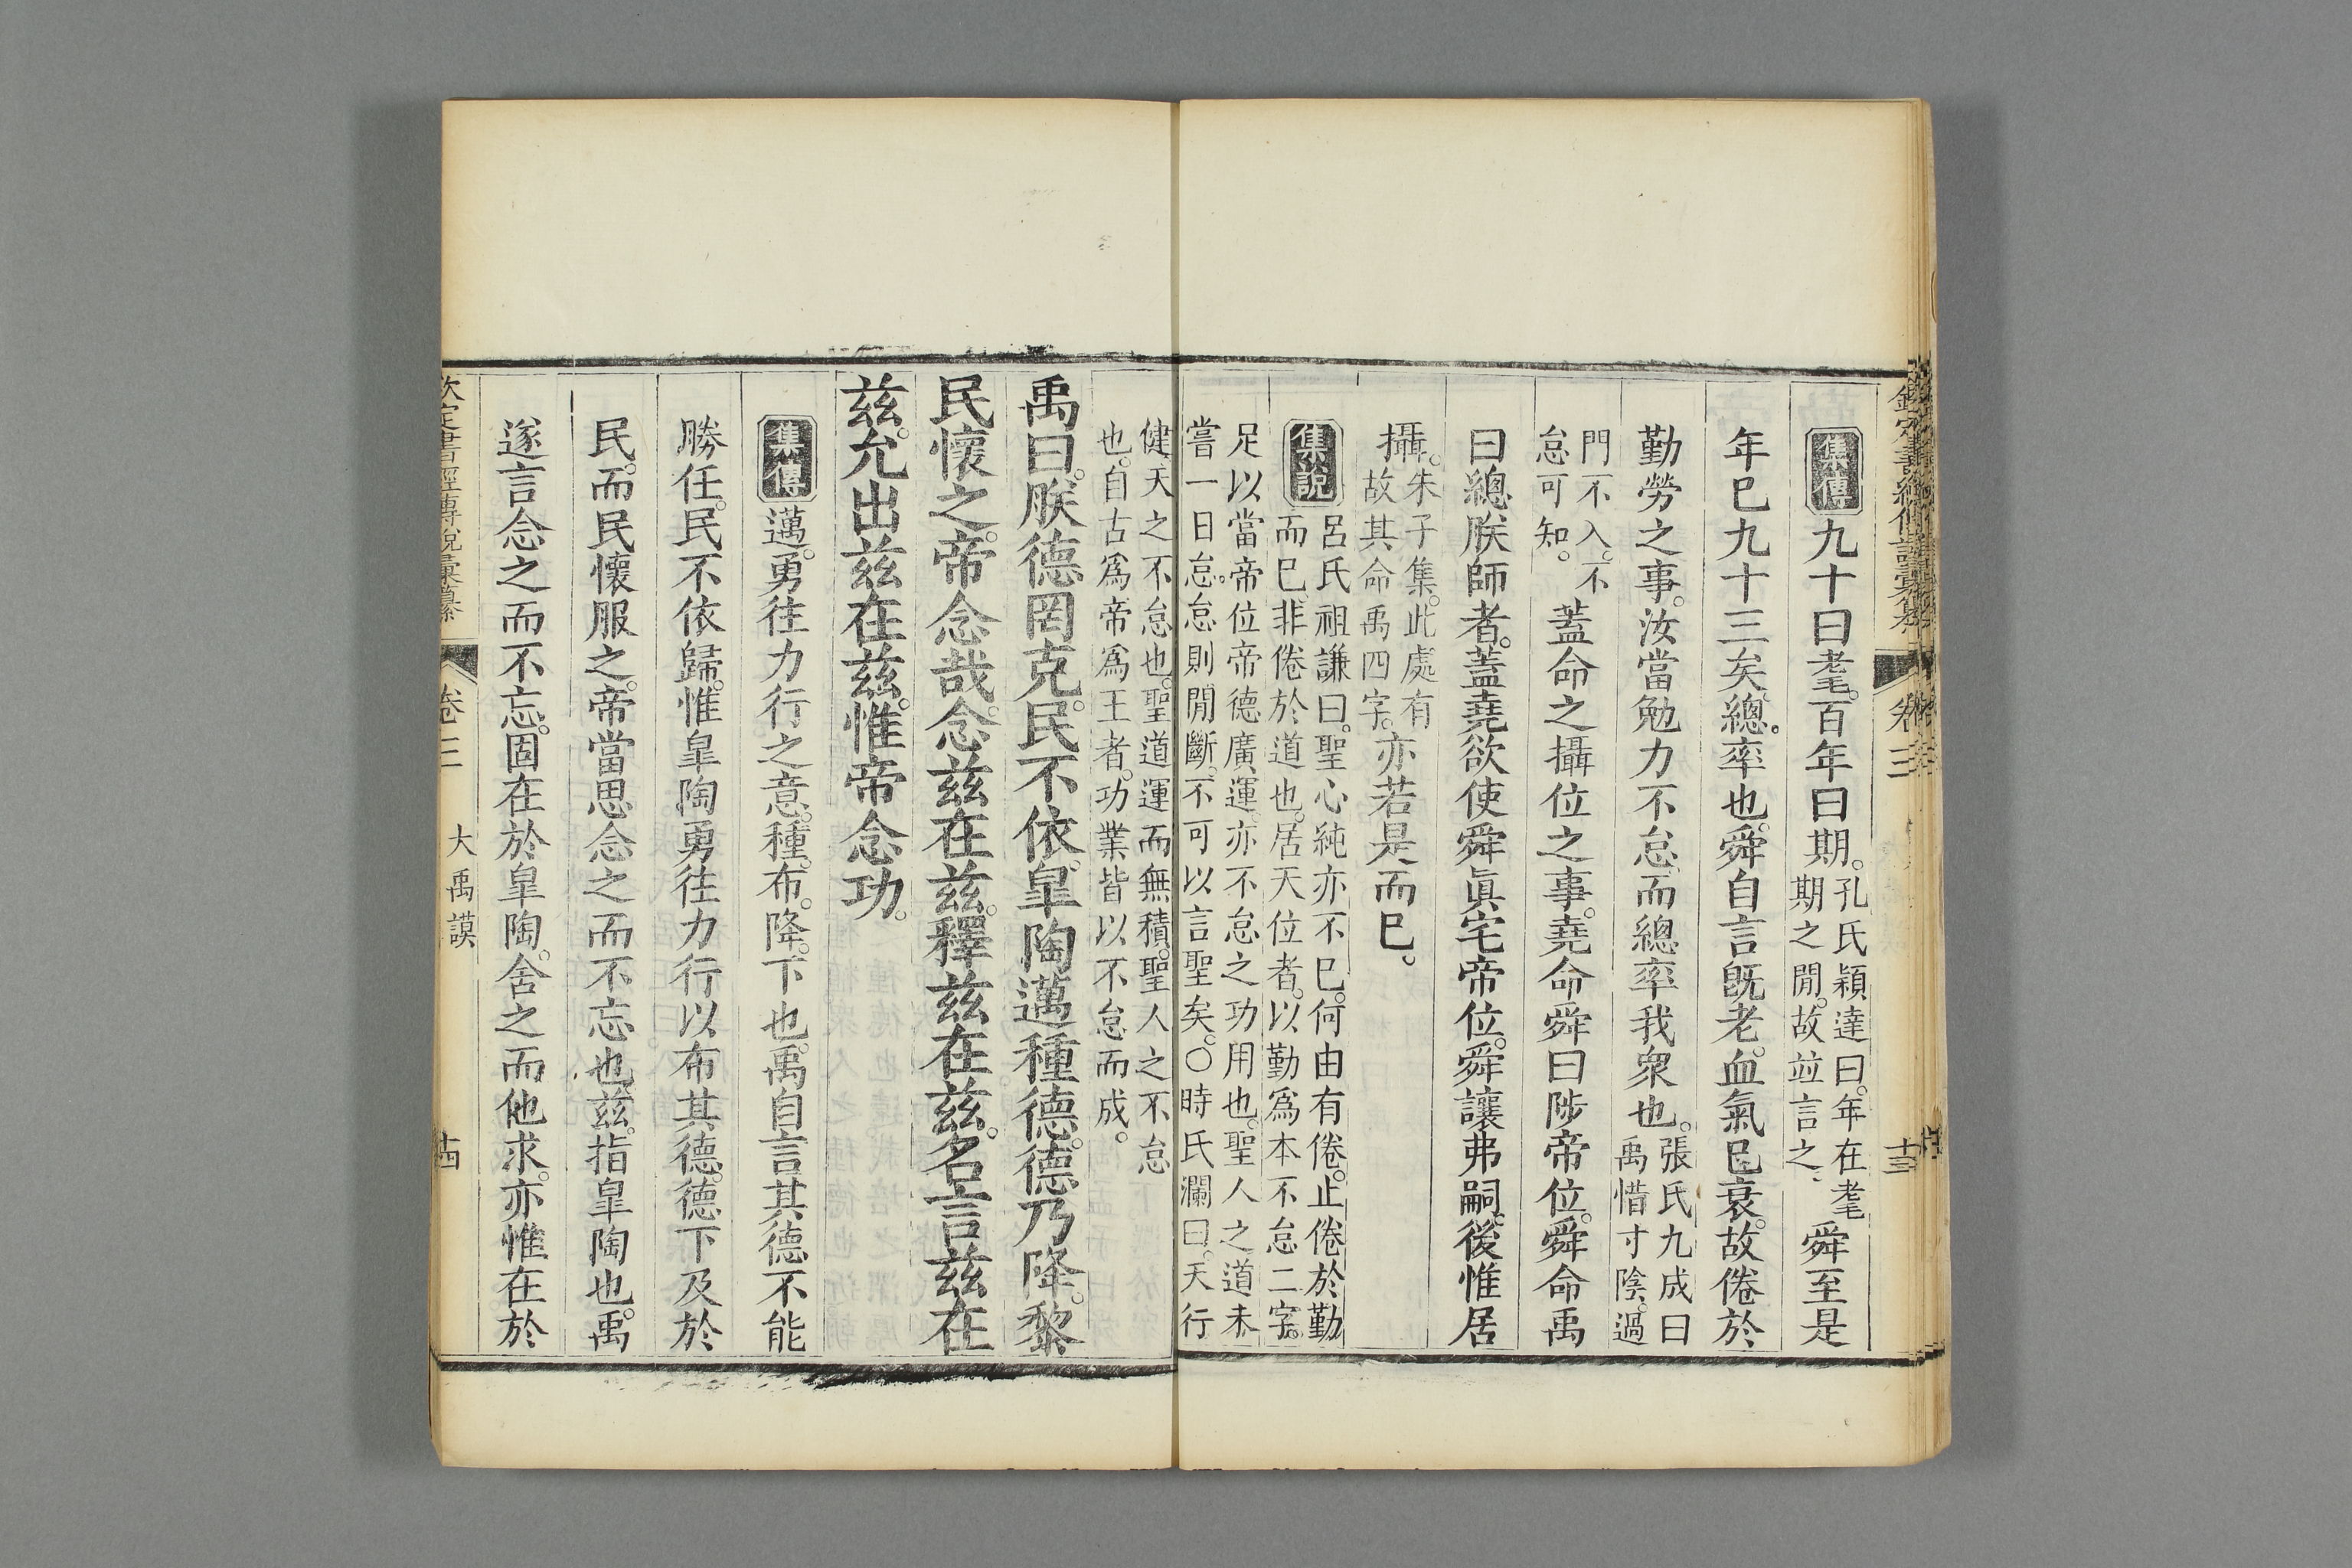 欽定書經傳說彙纂
卷三
十三
集傳 九十曰耄。百年曰期。孔氏穎達曰。年在耄
期之閒。故竝言之。舜至是
年已九十三矣。總。率也。舜自言旣老。血氣已衰。故倦於
勤勞之事。汝當勉力不怠。而總率我衆也。張氏九成曰
禹惜寸陰。過
門不入。不
怠可知。蓋命之攝位之事。堯命舜曰陟帝位。舜命禹
曰總朕師者。蓋堯欲使舜眞宅帝位。舜讓弗嗣。後惟居
攝。朱子集。此處有
故其命禹四字。亦若是而已。
集說 呂氏祖謙曰。聖心純亦不已。何由有倦。止倦於勤
而已。非倦於道也。居天位者。以勤爲本。不怠二字。
足以當帝位。帝德廣運。亦不怠之功用也。聖人之道。未
嘗一日怠。怠則閒斷。不可以言聖矣。○時氏瀾曰。天行
健。天之不怠也。聖道運而無積。聖人之不怠
也。自古爲帝爲王者。功業皆以不怠而成。
禹曰。朕德罔克。民不依。皐陶邁種德。德乃降。黎
民懷之。帝念哉。念茲在茲。釋茲在茲。名言茲在
茲。允出茲在茲。惟帝念功。
集傳 邁。勇往力行之意。種。布。降。下也。禹自言其德不能
勝任。民不依歸。惟皐陶勇往力行以布其德。德下及於
民。而民懷服之。帝當思念之而不忘也。茲。指皐陶也。禹
遂言念之而不忘。固在於皐陶。舍之而他求。亦惟在於
欽定書經傳說彙纂
卷三
大禹謨
十四